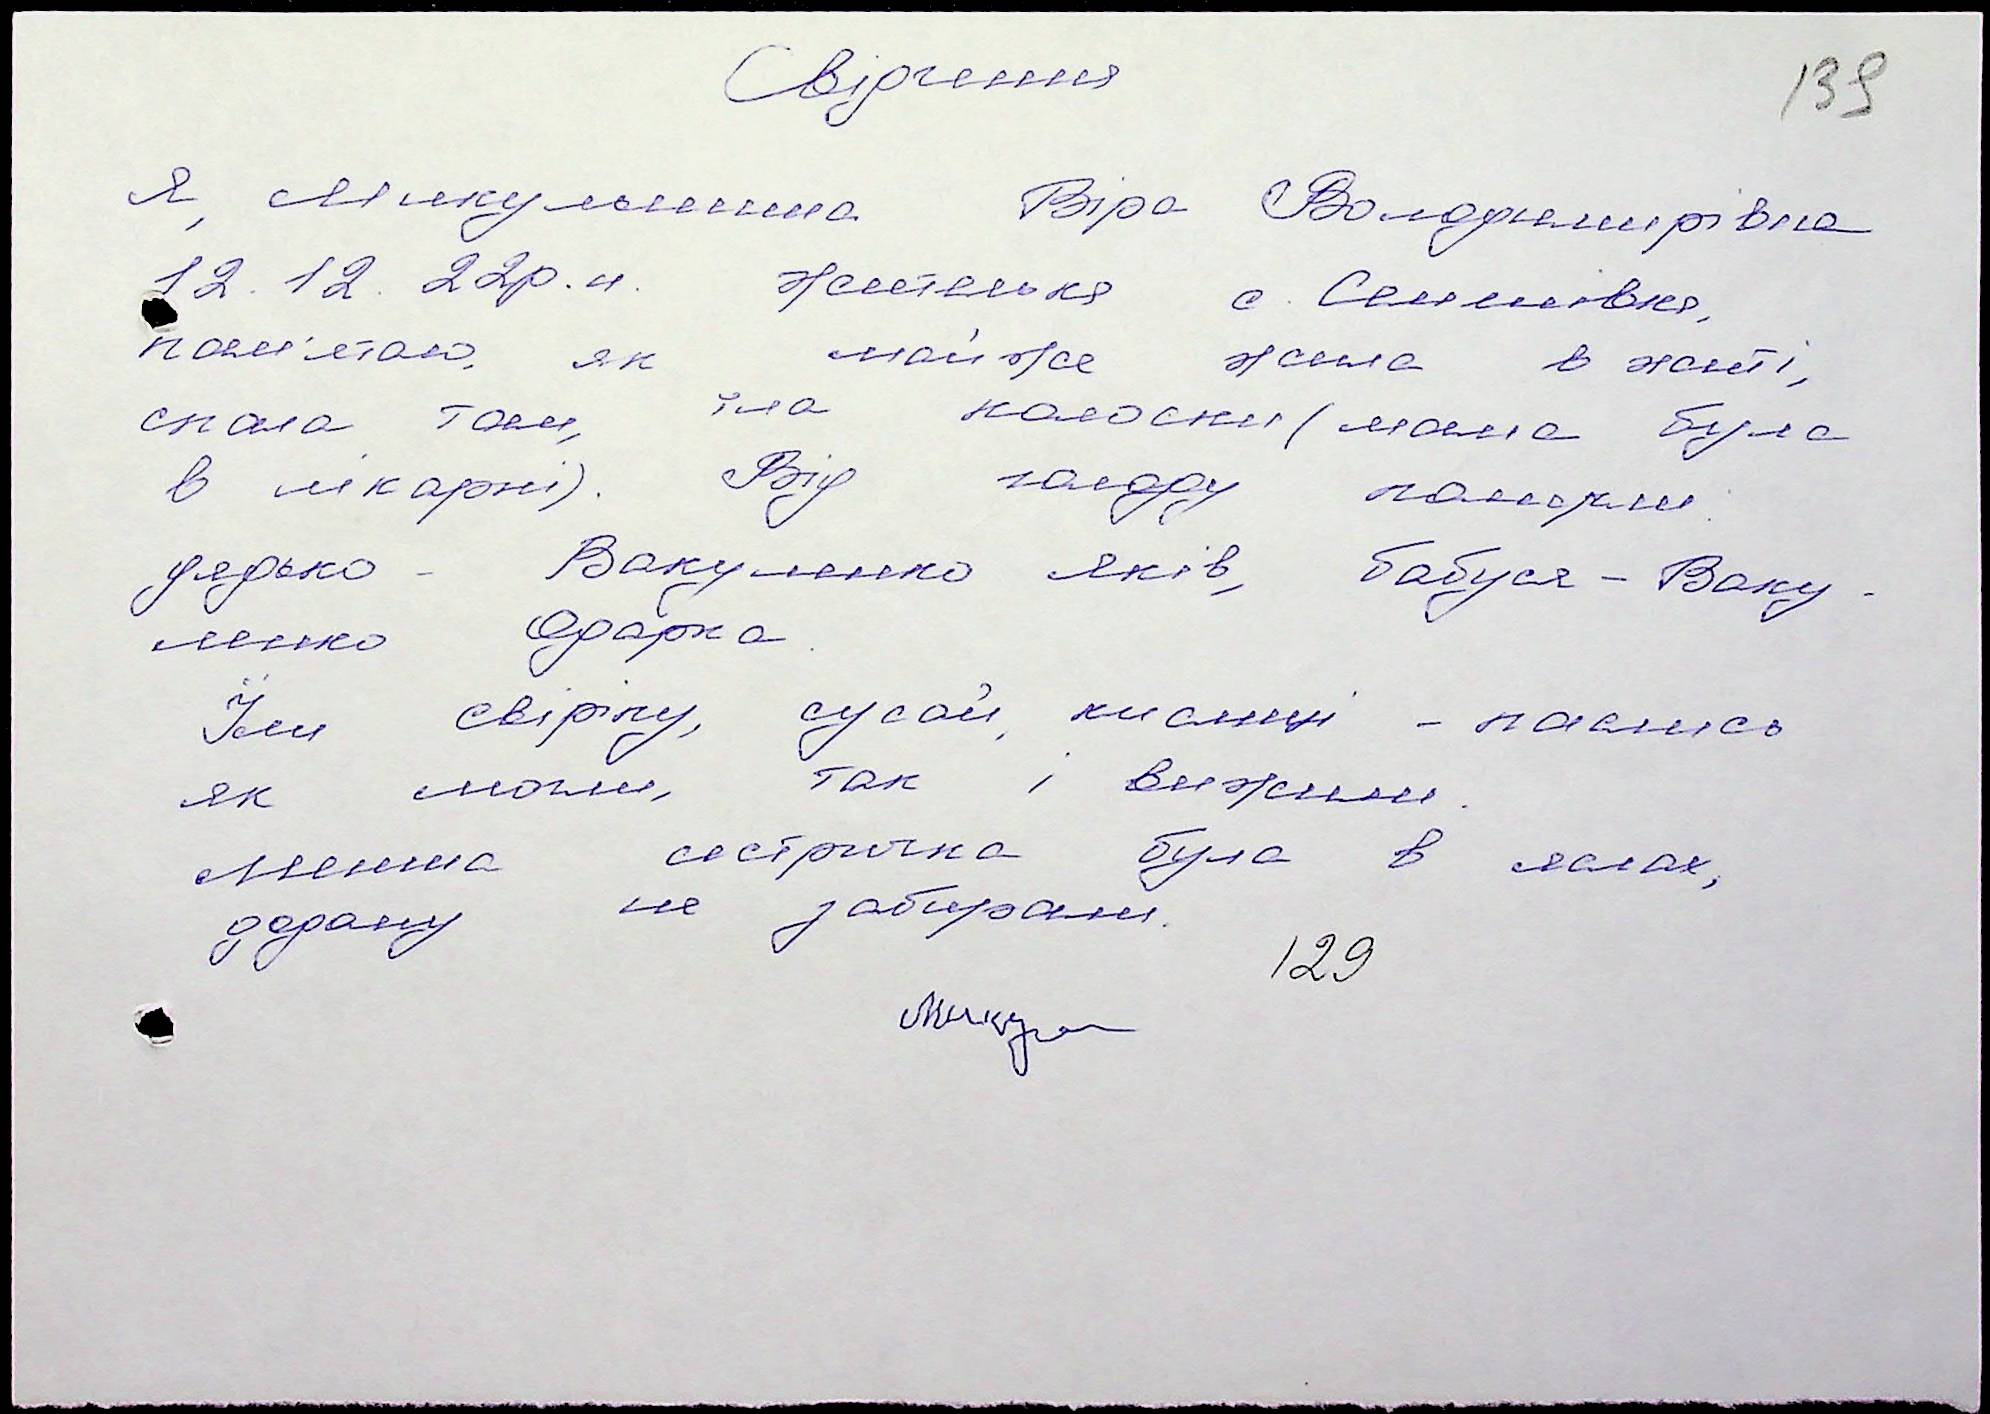 Свідчення
139
Я, Микульшина Віра Володимирівна
12.12.22р.н. жителька с. Семенівка,
пам'ятаю, як майже жила в житі,
спала там, їла колоски (мама була
в лікарні). Від голоду померли:
дядько - Вакуленко Яків, бабуся - Ваку-
ленко Одарка.
Їли свіріпу, сусай, кислиці - паслись
як могли, так і вижили.
Менша сестричка була в яслах,
додому не забирали.
129